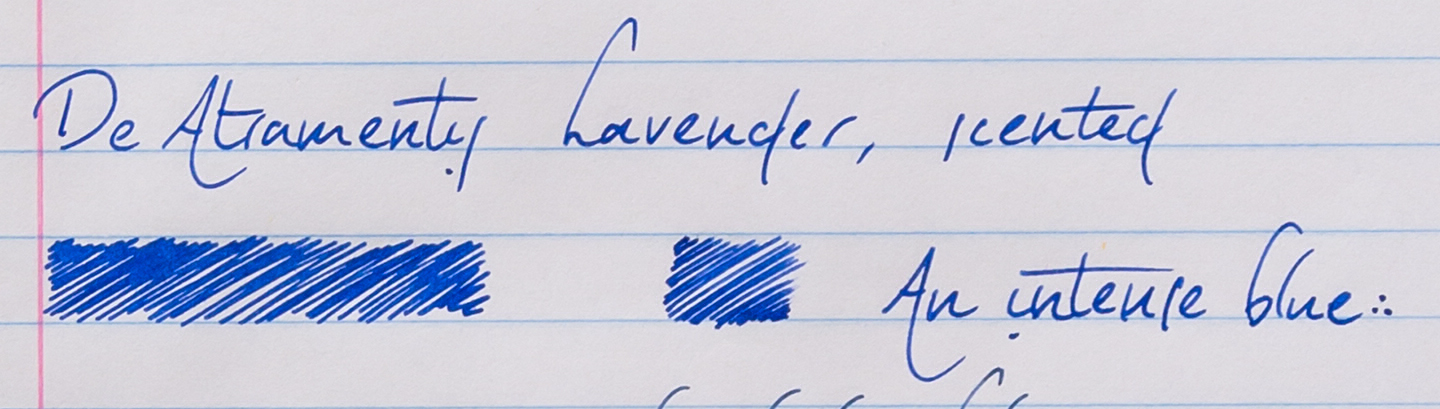 De Atramentis Lavender, scented
An intense blue∴